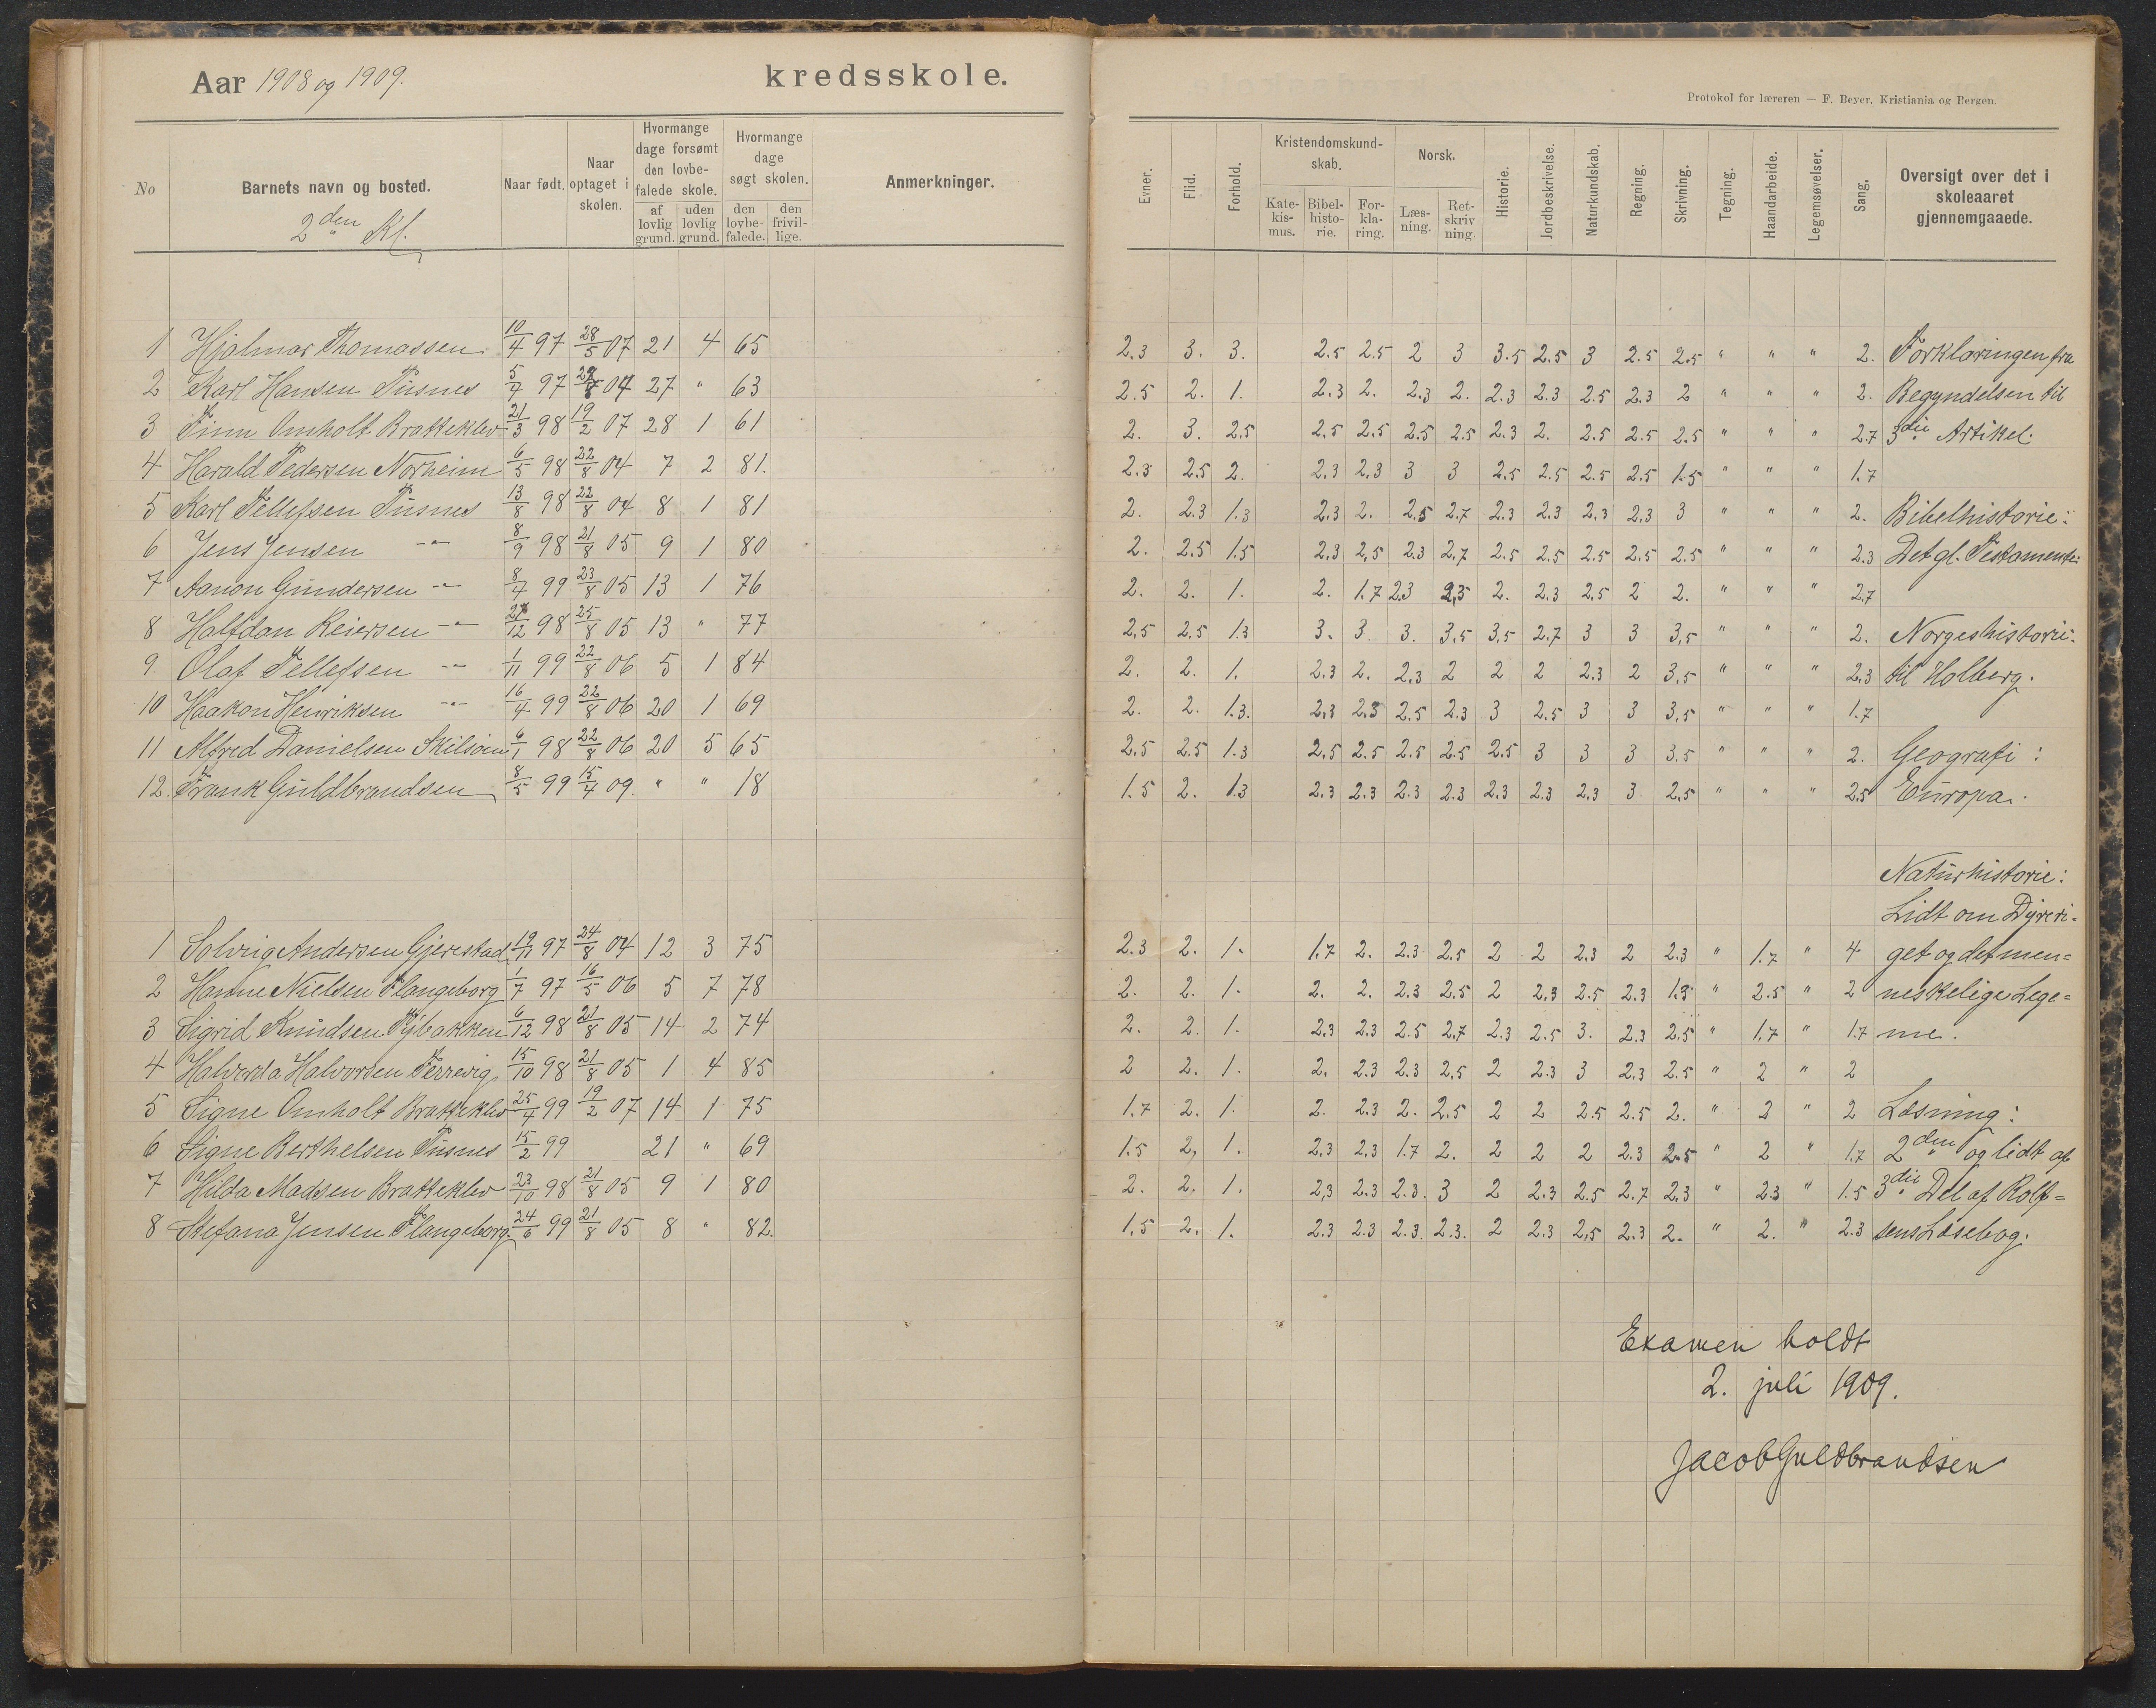 Aar 1908 og 1909. kredsskole.
No Barnets navn og bosted. Naar født. Naar optaget i skolen. Hvormange dage forsømt den lovbefalede skole. af lovlig grund. uden lovlig grund. Hvormange dage søgt skolen. den lovbefalede. den frivillige. Anmerkninger.
2den Kl.
1 Hjalmar Thomassen 10/4 97 28/5 07 21 4 65
2 Karl Hansen Pusnes 5/4 97 04 27 " 63
3 Finn Omholt Bratteklev 21/3 98 19/2 07 28 1 61
4 Harald Pedersen Norheim 6/5 98 22/8 04 7 2 81.
5 Karl Tellefsen Pusnes 13/8 98 22/8 04 8 1 81
6 Jens Jensen -"- 8/9 98 21/8 05 9 1 80
7 Aanon Gundersen -"- 8/4 99 23/8 05 13 1 76
8 Halfdan Reiersen -"- 12 98 25/8 05 13 " 77
9 Olaf Tellefsen -"- 1/11 99 22/8 06 5 1 84
10 Haakon Henriksen -"- 16/4 99 22/8 06 20 1 69
11 Alfred Danielsen Skilsøen 6/1 98 22/8 06 20 5 65
12. Frank Guldbrandsen 8/5 99 15/4 09. " " 18
1 Solvig Andersen Gjerestad 19/11 97 24/8 04 12 3 75
2 Hanne Nielsen Flangeborg 1/7 97 16/5 06 5 7 78
3 Sigrid Knudsen Tybakken 6/12 98 21/8 05 14 2 74
4 Halverda Halvorsen Færevig 15/10 98 21/8 05 1 4 85
5 Signe Omholt Bratteklev 25/4 99 19/2 07 14 1 75
6 Signe Berthelsen Pusnes 15/2 99 21 " 69
7 Hilda Madsen Bratteklev 23/10 98 21/8 05 9 1 80
8 Stefana Jensen Flangeborg. 24/6 99 21/8 05 8 " 82.
Protokol for læreren — F. Beyer, Kristiania og Bergen.
Evner. Flid. Forhold. Kristendomskundskab. Katekismus. Bibelhistorie. Forklaring. Norsk. Læsning. Retskrivning. Historie. Jordbeskrivelse. Naturkundskab. Regning. Skrivning. Tegning. Haandarbeide. Legemsøvelser. Sang. Oversigt over det i skoleaaret gjennemgaaede.
2.3 3. 3. 2.5 2.5 2 3 3.5 2.5 3 2.5 2.5 " " " 2. Forklaringen fra
2.5 2. 1. 2.3 2. 2.3 2. 2.3 2.3 2.5 2.3 2 " " " 2. Begyndelsen til
2. 3. 2.5 2.5 2.5 2.5 2.5 2.3 2. 2.5 2.5 2.5 " " " 2.7 3die Artikel.
2.3 2.5 2. 2.3 2.3 3 3 2.5 2.5 2.5 2.5 1.5 " " " 1.7
2. 2.3 1.3 2.3 2. 2.5 2.7 2.3 2.3 2.3 2.3 3 " " " 2. Bibelhistorie:
2. 2.5 1.5 2.3 2.5 2.3 2.7 2.5 2.5 2.5 2.5 2.5 " " " 2.3 Det gl. Testamente.
2. 2. 1. 2. 1.7 2.3 2.5 2. 2.3 2.5 2 2. " " " 2.7
2.5 2.5 1.3 3. 3. 3. 3.5 3.5 2.7 3 3 3.5 " " " 2. Norgeshistorie:
2. 2. 1. 2.3 2. 2.3 2 2 2 2.3 2 3.5 " " " 2.3 til Holberg.
2. 2. 1.3. 2.3 2.3 2.5 2.3 3 2.5 3 3 3.5 " " " 1.7
2.5 2.5 1.3 2.5 2.5 2.5 2.5 2.5 3 3 3 3.5 " " 2. Geografi:
1.5 2. 1.3 2.3 2.3 2.3 2.3 2.3 2.3 2.3 3 2.5 " " " 2.5 Europa.
Naturhistorie:
Lidt om Dyreri-
2.3 2. 1. 1.7 2. 2.3 2.5 2 2 2.3 2 2.3 " 1.7 " 4 get og det men=
2. 2. 1. 2. 2. 2.3 2.5 2 2.3 2.5 2.3 1.3 " 2.5 " 2 neskelige Lege=
2. 2. 1. 2.3 2.3 2.5 2.7 2.3 2.5 3. 2.3 2.5 " 1.7 " 1.7 me.
2 2. 1. 2. 2.3 2.3 2.5 2 2.3 3 2.3 2.5 " 2 " 2
1.7 2. 1. 2. 2.3 2. 2.5 2 2 2.5 2.5 2. " 2 " 2 Læsning:
1.5 2. 1. 2.3 2.3 1.7 2. 2 2 2 2.3 2.5 " 2 " 1.7 2den og lidt af
2. 2. 1. 2.3 2.3 2.3. 3 2 2.3 2.5 2.7 2.3 " 2.3 " 1.5 3die Del af Rolf=
1.5 2. 1. 2.3 2.3 2.3. 2.3. 2 2.3 2.5 2.3 2. " 2. " 2.3 sens Læsebog.
Examen holdt
2. juli 1909.
Jacob Guldbrandsen